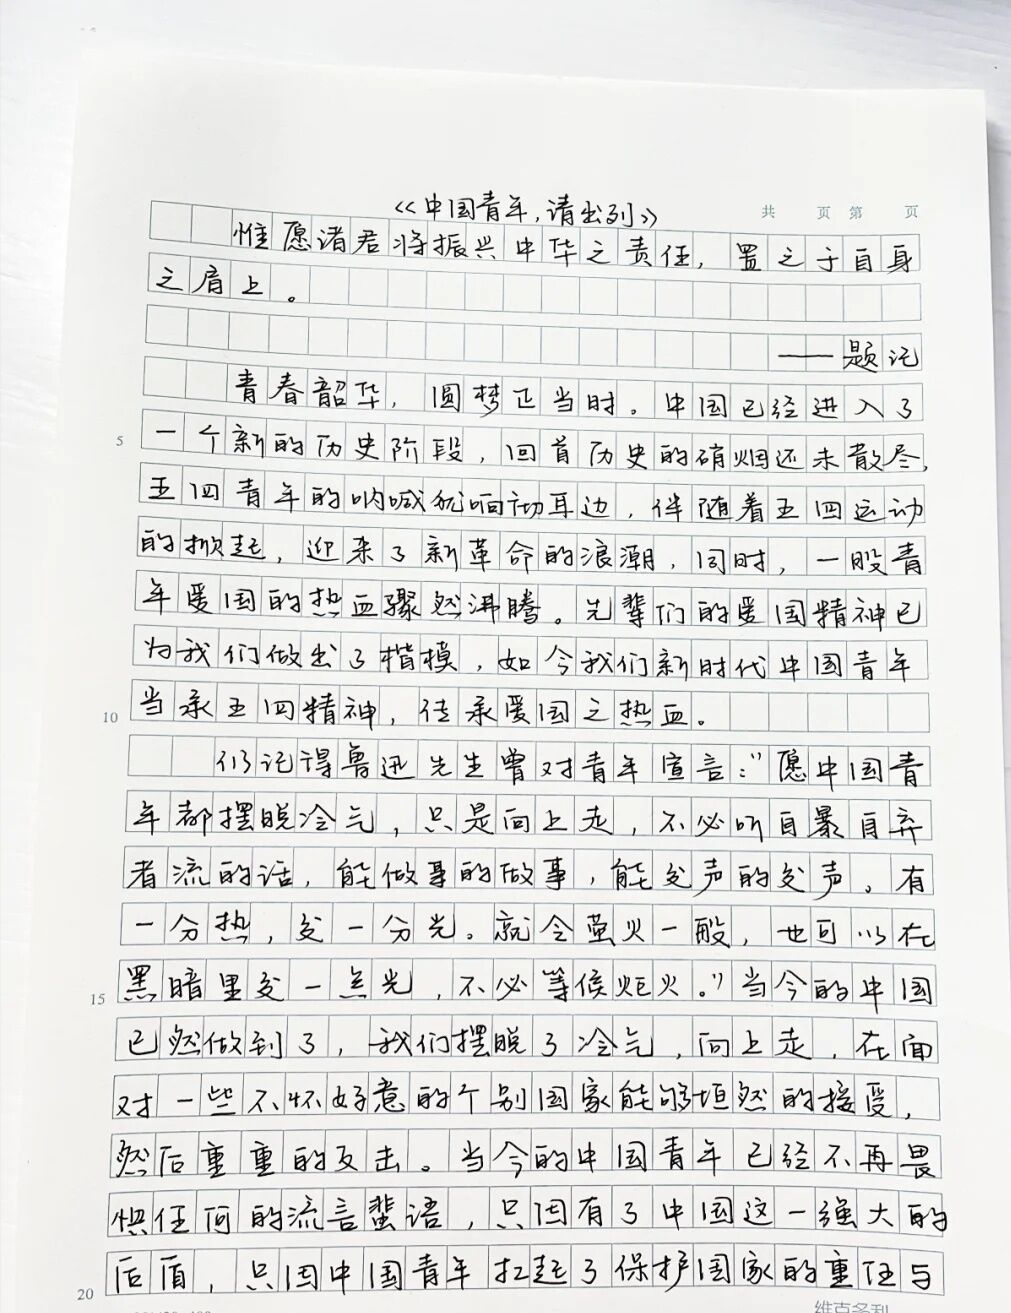 《中国青年,请出列》
共 页 第 页
惟愿诸君将振兴中华之责任,置之于自身
之肩上。
——题记
青春韶华,圆梦正当时。中国已经进入了
5 一个新的历史阶段,回首历史的硝烟还未散尽,
五四青年的呐喊犹响彻耳边,伴随着五四运动
的掀起,迎来了新革命的浪潮,同时,一股青
年爱国的热血骤然沸腾。先辈们的爱国精神已
为我们做出了楷模,如今我们新时代中国青年
10 当承五四精神,传承爱国之热血。
仍记得鲁迅先生曾对青年宣言:"愿中国青
年都摆脱冷气,只是向上走,不必听自暴自弃
者流的话,能做事的做事,能发声的发声。有
一分热,发一分光。就令萤火一般,也可以在
15 黑暗里发一点光,不必等候炬火。"当今的中国
已然做到了,我们摆脱了冷气,向上走,在面
对一些不怀好意的个别国家能够坦然的接受,
然后重重的反击。当今的中国青年已经不再畏
惧任何的流言蜚语,只因有了中国这一强大的
20 后盾,只因中国青年扛起了保护国家的重任与